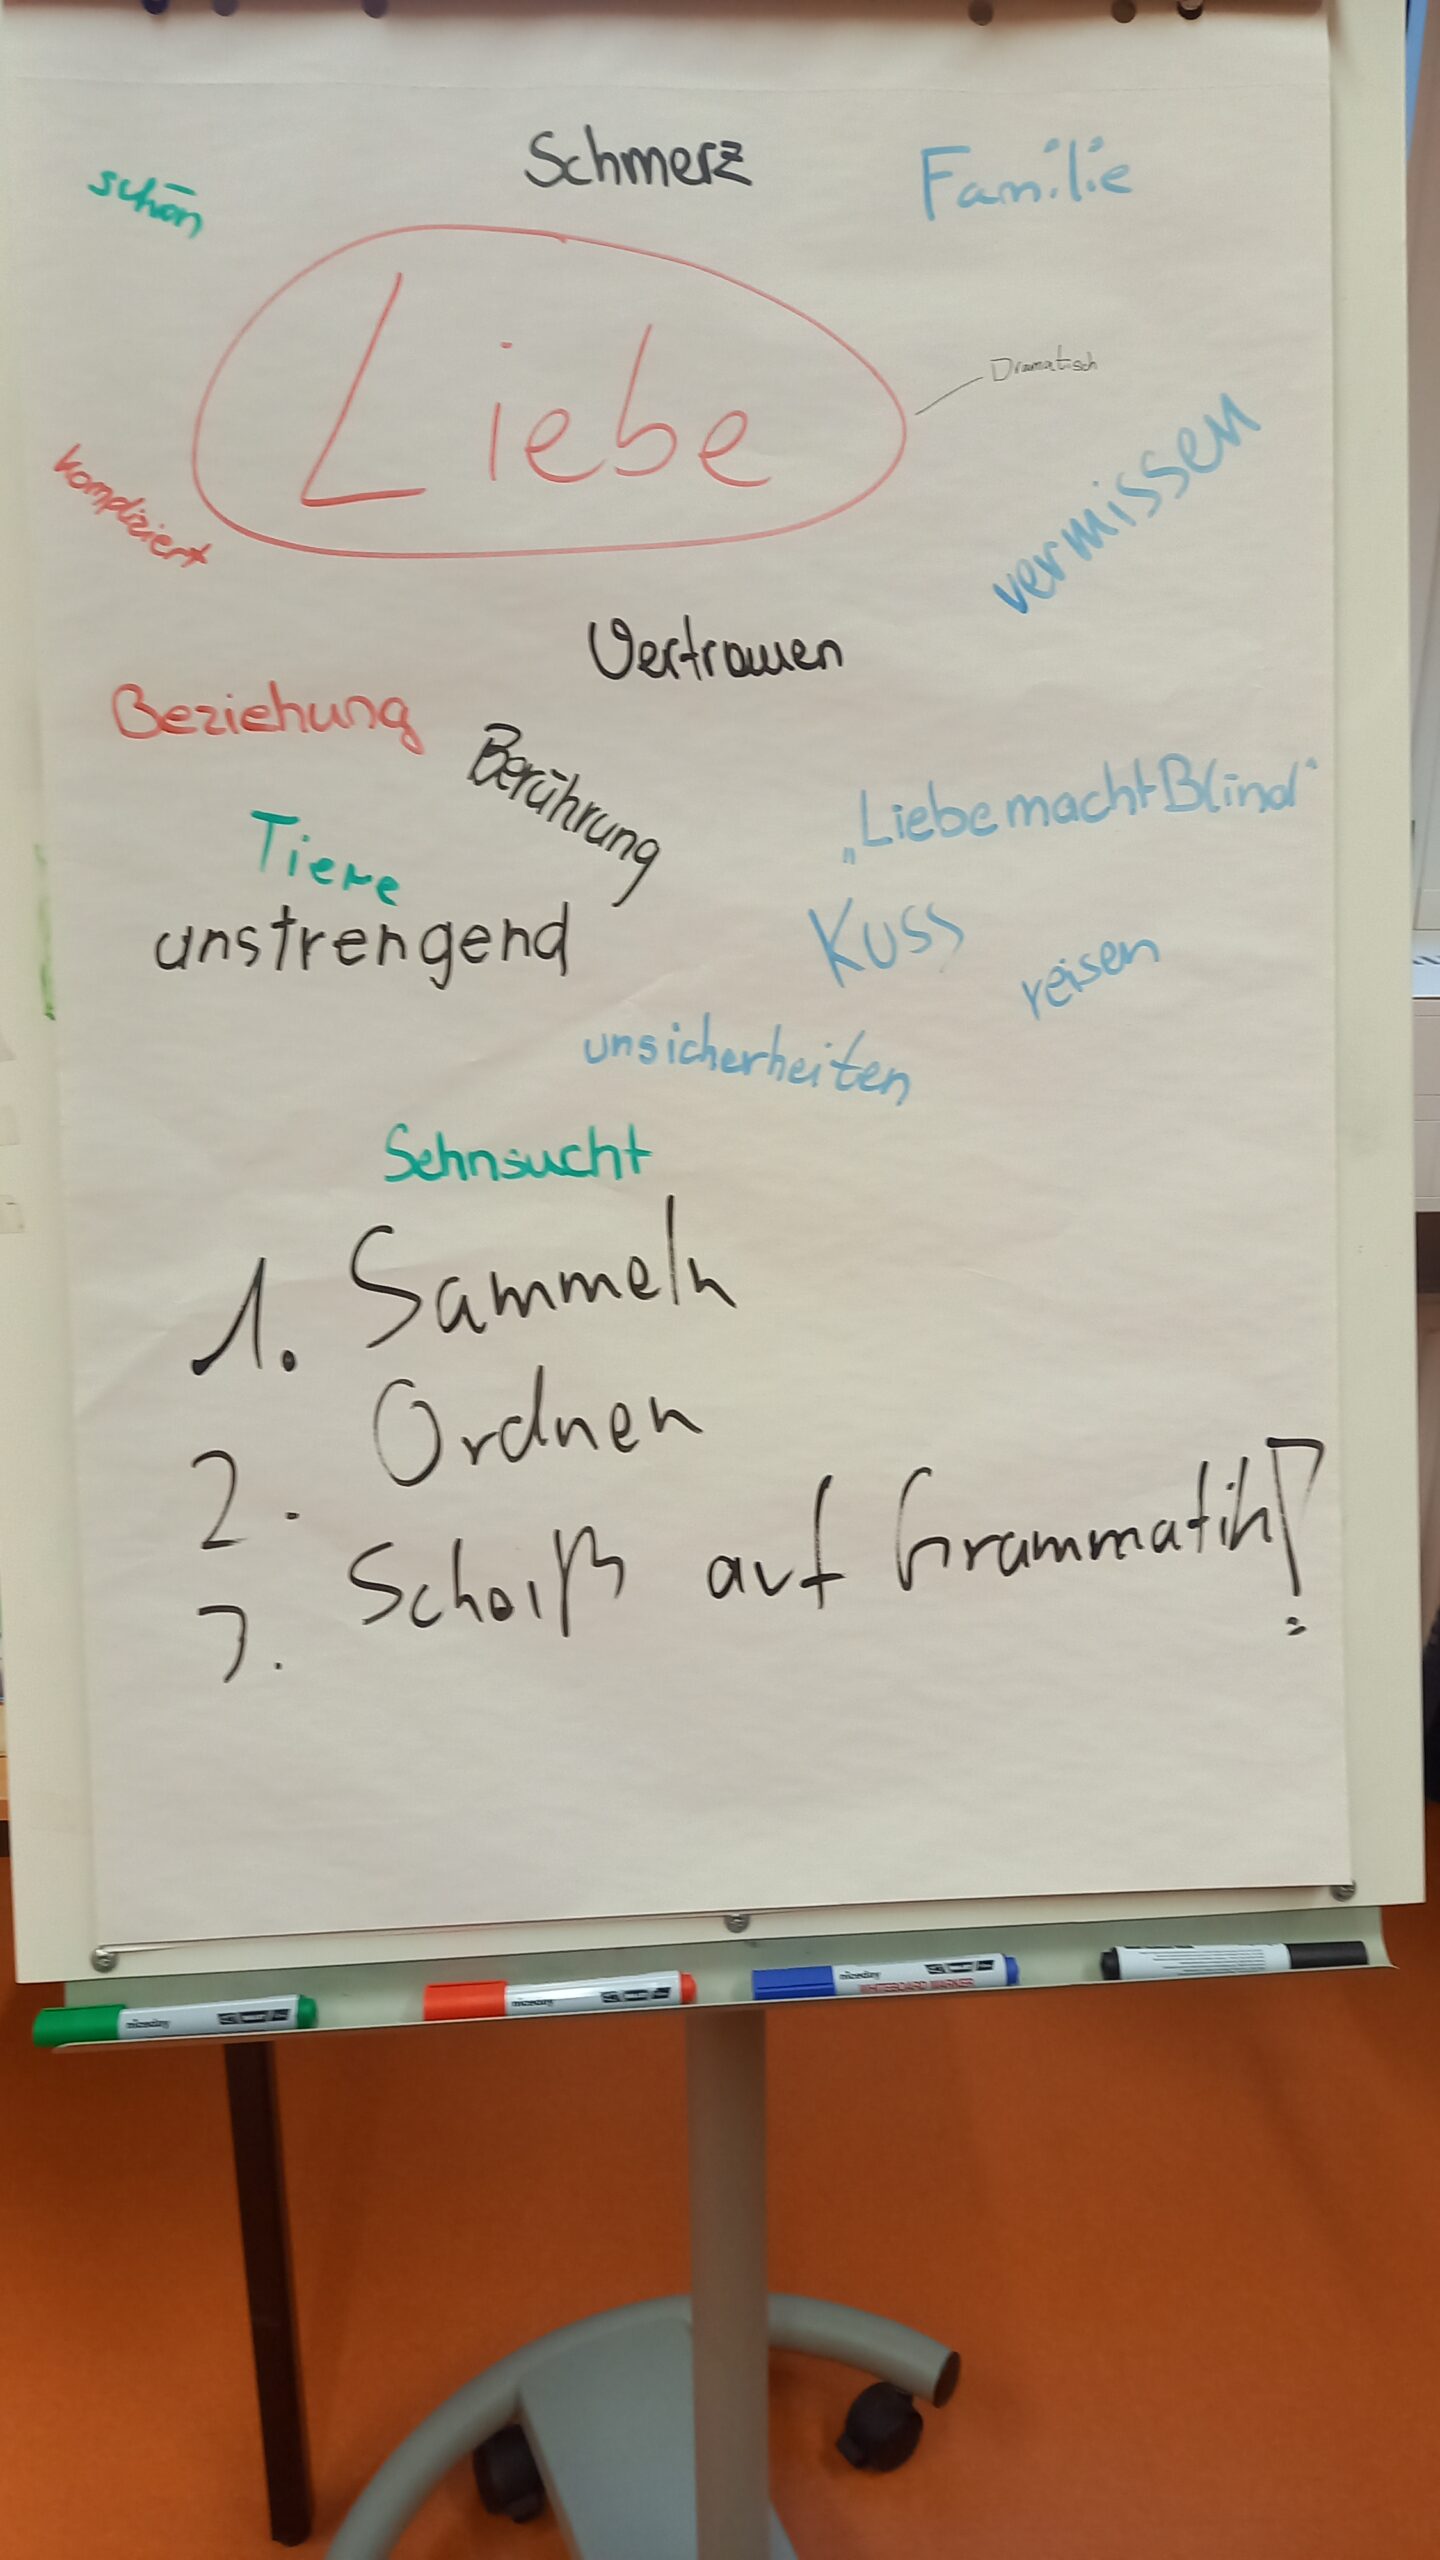 Schmerz
Familie
schön
Liebe
Dramatisch
kompliziert
vermissen
Vertrauen
Beziehung
Berührung
„Liebe macht Blind"
Tiere
anstrengend
Kuss
reisen
unsicherheiten
Sehnsucht
1. Sammeln
2. Ordnen
3. Scheiß auf Grammatik!
niceday
niceday
niceday
WHITEBOARD MARKER